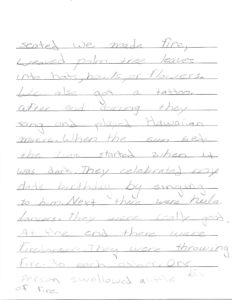 seated we made fire,
weaved palm tree leaves
into hats, bowls, or flowers.
We also got a tattoo.
After and during they
song and played Hawaiian
music. When the sun set
the luau started when it
was dark. They celebrated
birthday by singing
to him. Next there were hula
dancers they were really good.
At the end there were
They were throwing
fire to each other. One
person swallowed a little bit
of fire.